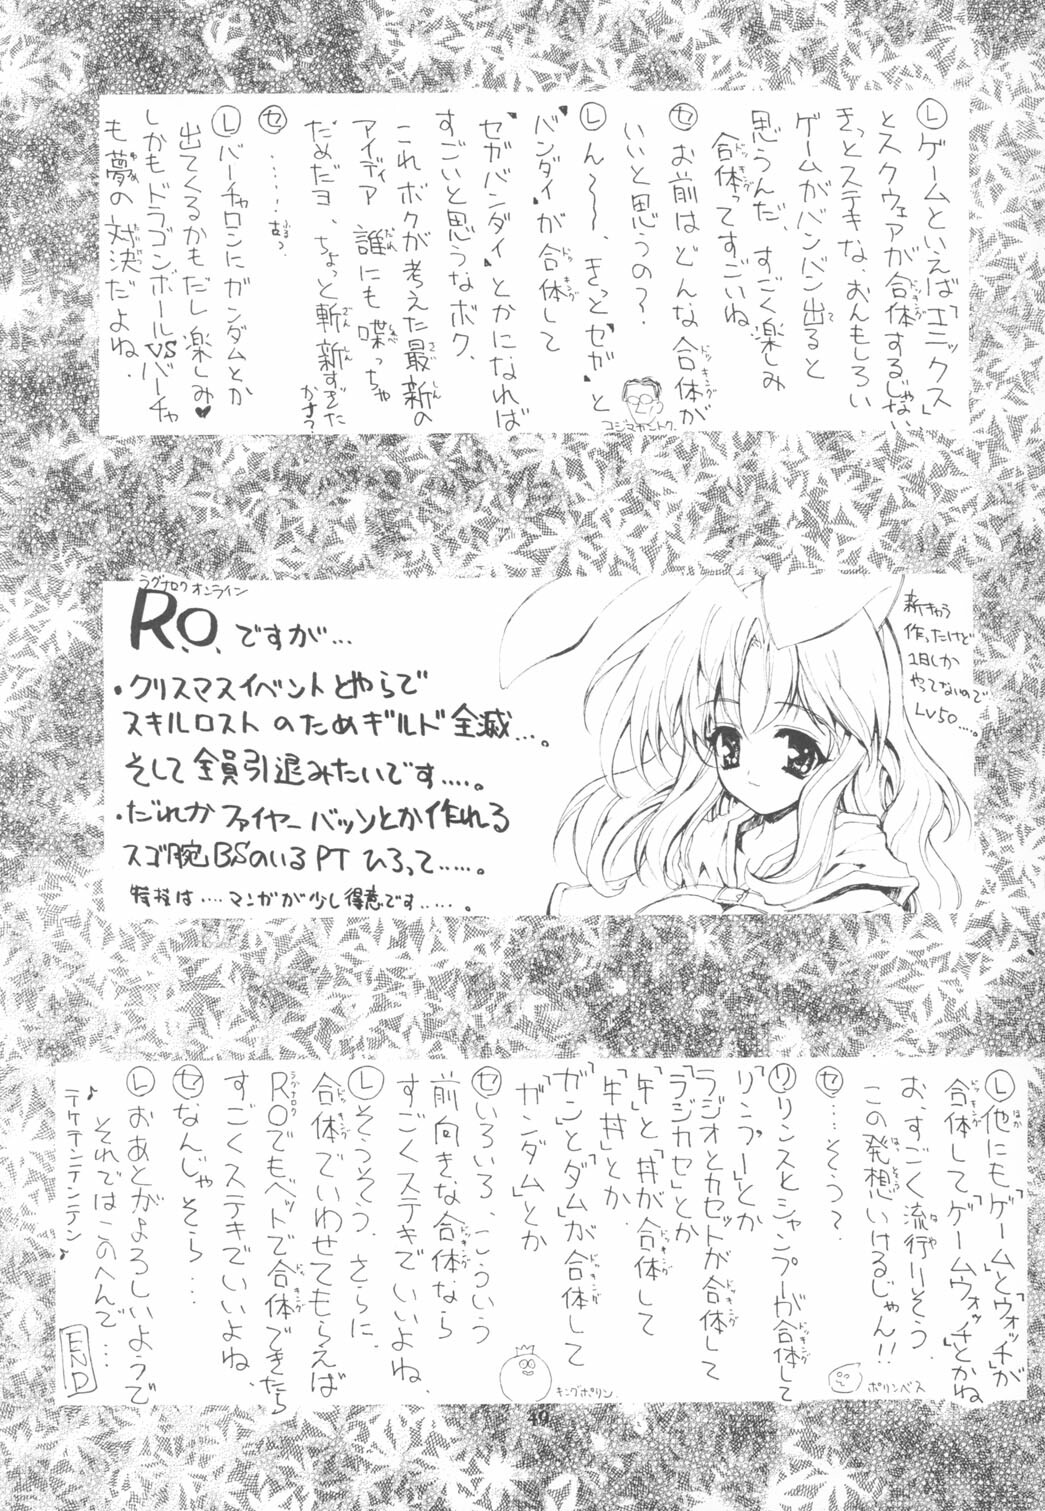 Ⓛゲームといえば「エニックス」
とスクウェアが合体するじゃない
きっとステキな、おんもしろい
ゲームがバンバン出ると
思うんだ、すごく楽しみ
合体ってすごいね
セお前はどんな合体が
いいと思うの?
Ⓛん〜〜〜、きっと"セガ"と
"バンダイ"が合体して
"セガバンダイ"とかになれば
すごいと思うなボク、
これボクが考えた最新の
アイディア誰にも喋っちゃ
だめだヨ、ちょっと斬新すぎた
かナ?
セ……古っ
Ⓛバーチャロンにガンダムとか
出てくるかもだし楽しみ♥
しかもドラゴンボールVSバーチャ
も夢の対決だよね.
コジマカントク.
ラグナロクオンライン
R.O.ですが...
・クリスマスイベントとやらで
スキルロストのためギルド全滅...。
そして全員引退みたいです....。
・だれかファイヤーバッソとか作れる
スゴ腕BSのいるPTひろって.....。
特技は....マンガが少し得意です.....。
新きゃら
作ったけど
1日しか
やってないので
LV50...。
Ⓛ他にも「ゲーム」と「ウォッチ」が
合体して「ゲームウォッチ」とかね
お、すごく流行りそう.
この発想いけるじゃん!!
セ…そう?
Ⓛリンスとシャンプーが合体して
「リンプー」とか
ラジオとカセットが合体して
「ラジカセ」とか
「牛」と「丼」が合体して
「牛丼」とか.
「ガン」と「ダム」が合体して
「ガンダム」とか
セいろいろ、こういう
前向きな合体なら
すごくステキでいいよね、
Ⓛそうそう、さらに
合体でいわせてもらえば
ROでもペットで合体できたら
すごくステキでいいよね、
セなんじゃそら…
Ⓛおあとがよろしいようで
それではこのへんで…
♪テケテンテンテン♪
END
ポリンベス
キングポリン.
49